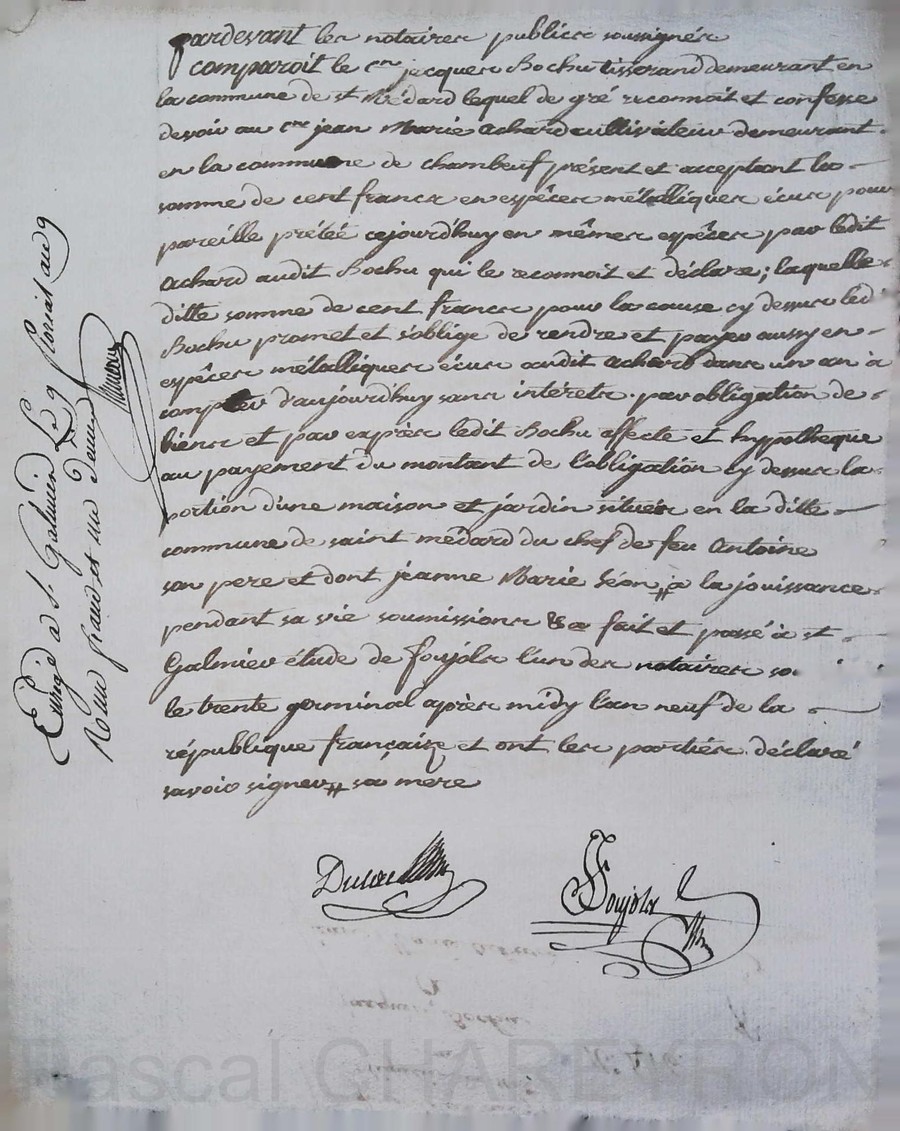 pardevant les notaires publics soussignés
comparoit le cen jacques Bochu tisserand demeurant en
la commune de st Médard lequel de gré reconnoit et confesse
devoir au cen jean Marie Achard cultivateur demeurant
en la commune de chambeuf présent et acceptant la
somme de cent francs en espêces métalliques écus pour
pareille prêtée cejourd'huy en mêmes espêces par ledit
Achard audit Bochu qui le reconnoit et déclare; laquelle
ditte somme de cent francs pour la cause cy dessus led
Bochu promet et s'oblige de rendre et payer aussy en
espêces métalliques écus audit achard dans un an à
compter d'aujourd'huy sans intérets. par obligation de
biens et par exprès ledit Bochu affecte et hypotheque
au payement du montant de l'obligation cy dessus la
portion d'une maison et jardin situés en la ditte
commune de saint médard du chef de feu Antoine
son pere et dont jeanne Marie Séon # a la jouissance
pendant sa vie soumissions &a fait et passé à st
Galmier étude de foujols l'un des notaires so
le trente germinal après midy l'an neuf de la
république française et ont les parties déclaré
savoir signer # sa mere
Foujols
Enrgé à St Galmier Le 9 floréal an 9
Reçu franc et un Decime
Pascal CHAREYRON